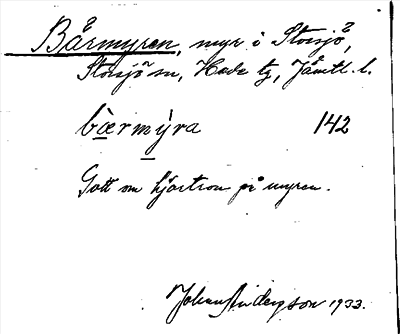 Bårmyren, myr i Storsjö,
Storsjö sn, Hede tg, Jämtl. l.
bærmy̆ra 142
Gott om hjortron på myren.
Johan Andersson 1933.